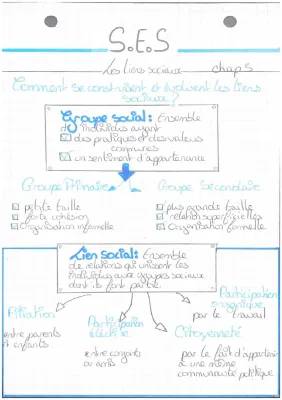 S.E.S
Les liens sociaux chap 5
Comment se construisent et évoluent les liens
sociaux ?
Groupe social : Ensemble
d'individus ayant
des pratiques et des valeurs
communes
un sentiment d'appartenance
Groupe Primaire
petite taille
forte cohésion
organisation informelle
Groupe Secondaire
plus grande taille
relation superficielles
organisation formelle
Lien social : Ensemble
de relations qui unissent les
individus aux groupes sociaux
dont ils font partie.
Filiation
entre parents
et enfants
Participation
élective
entre conjoints
ou amis
Citoyenneté
par le fait d'appartenir
à une même
communauté politique
Participation
organique
par le travail